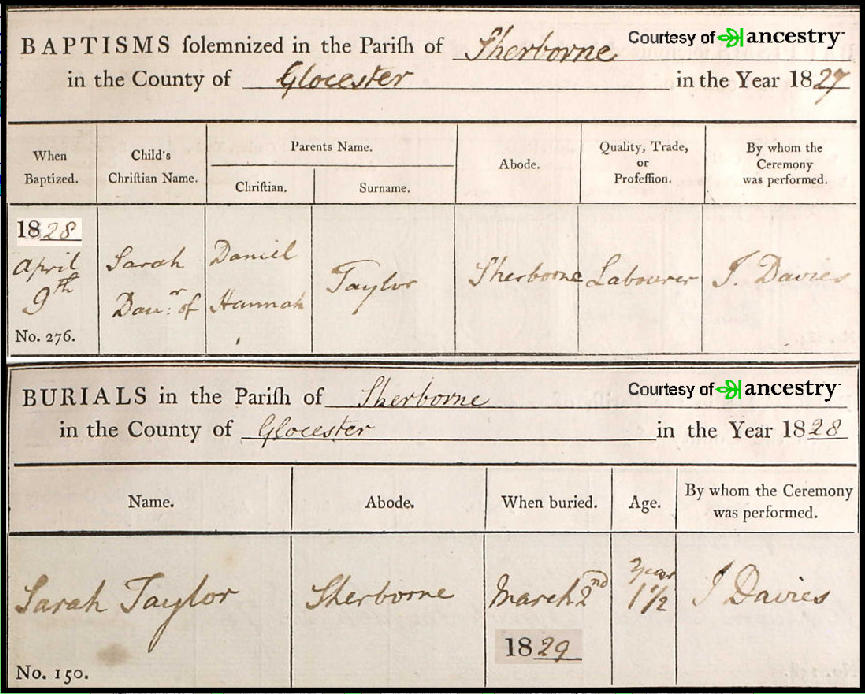 BAPTISMS solemnized in the Pariſh of Sherborne Courtesy of ancestry
in the County of Glocester in the Year 1827
When Baptized.
Child's Chriſtian Name.
Parents Name.
Chriſtian.
Surname.
Abode.
Quality, Trade, or Profeſſion.
By whom the Ceremony was performed.
1828
April
9th
No. 276.
Sarah
Daur. of
Daniel
Hannah
Taylor
Sherborne
Labourer
J. Davies
BURIALS in the Pariſh of Sherborne Courtesy of ancestry
in the County of Glocester in the Year 1828
Name.
Abode.
When buried.
Age.
By whom the Ceremony was performed.
Sarah Taylor
No. 150.
Sherborne
March 2nd
1829
Year
1½
J Davies